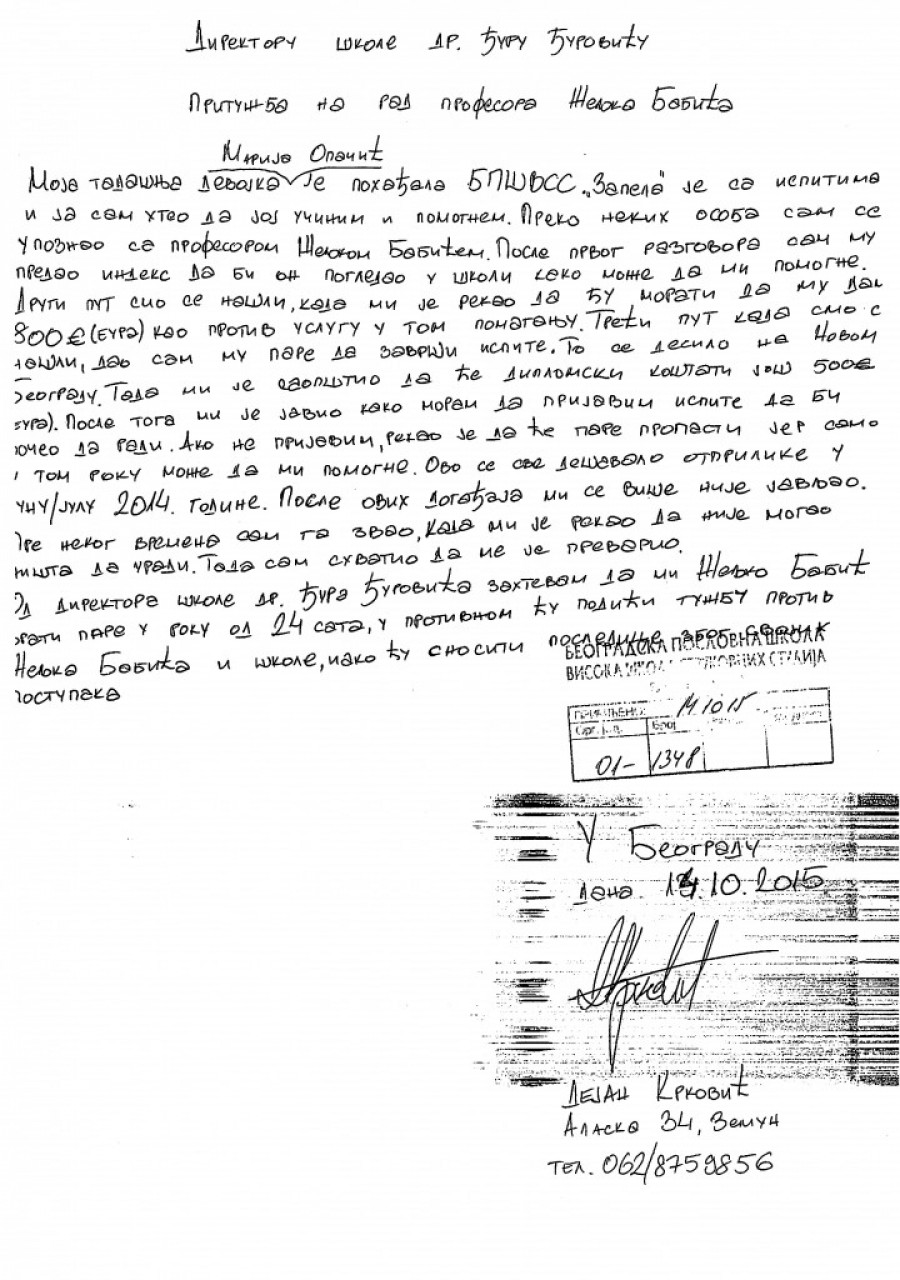 Директору школе др. Ђуру Ђуровићу
Притужба на рад професора Жељка Бабића
Марија Опачић
Моја тадашња девојка је похађала БПШВСС. „Запела" је са испитима
и ја сам хтео да јој учиним и помогнем. Преко неких особа сам се
упознао са професором Жељком Бабићем. После првог разговора сам му
предао индекс да би он погледао у школи како може да ми помогне.
Други пут смо се нашли, када ми је рекао да ћу морати да му дам
800€ (еура) као против услугу у том помагању. Трећи пут када смо с
нашли, дао сам му паре да заврши испите. То се десило на Новом
Београду. Тада ми је саопштио да ће дипломски коштати још 500€
еура). После тога ми је јавио како морам да пријавим испите да би
очео да ради. Ако не пријавим, рекао је да ће паре пропасти јер само
у том року може да ми помогне. Ово се све дешавало отприлике у
уну/јулу 2014. године. После ових догађаја ми се више није јављао.
Пре неког времена сам га звао, када ми је рекао да није могао
ништа да уради. Тада сам схватио да ме је преварио.
Од директора школе др. Ђура Ђуровића захтевам да ми Жељко Бабић
врати паре у року од 24 сата, у противном ћу подићи тужбу против
Жељка Бабића и школе, иако ћу сносити последице због својих
поступака
БЕОГРАДСКА ПОСЛОВНА ШКОЛА
ВИСОКА ШКОЛА СТРУКОВНИХ СТУДИЈА
ПРИМЉЕНО:
Орг. јед. Број
01- 1348
У Београду
дана 10.2015
Дејан Крковић
Аласка 34, Земун
тел. 062/8759856